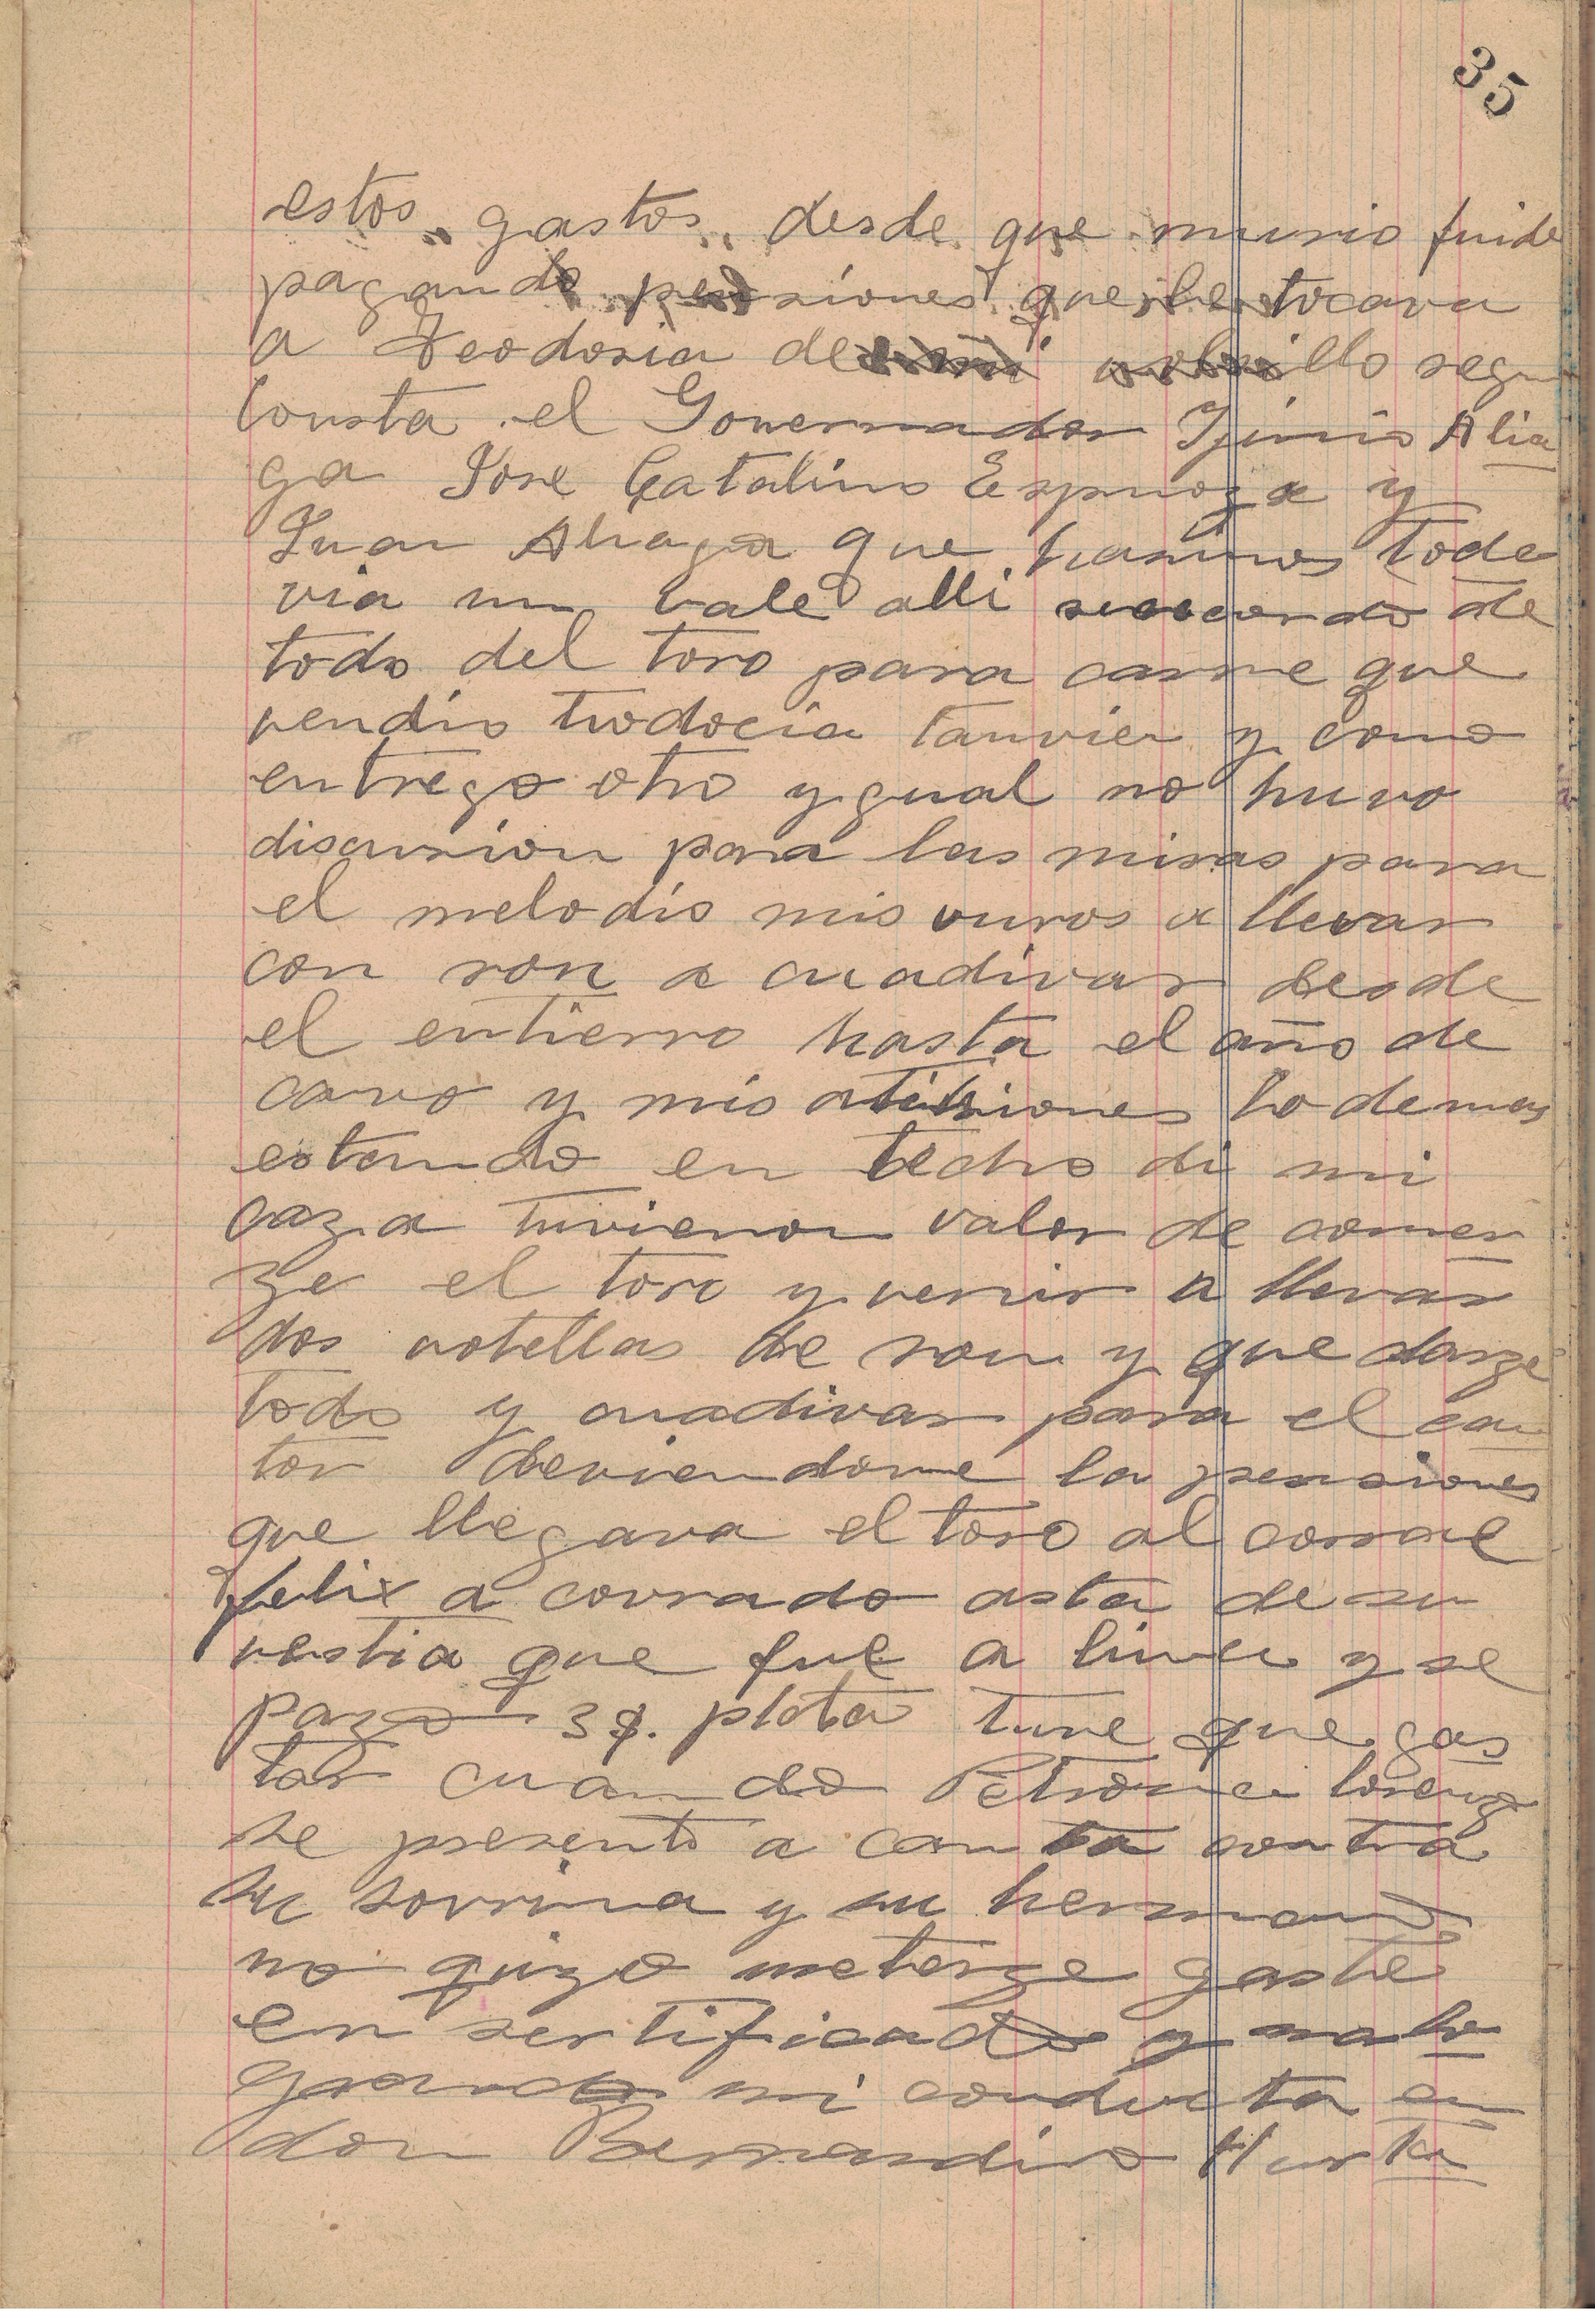 35
estos gastos desde que murio fuide
pagando pensiones que le tocava
a Teodosia de volsillo segun
consta el Governador Ijinio Alia
ga Jose Catalino Espinoza y
Juan Aliaga que hasimos toda
via un vale alli de
todo del toro para carne que
vendio tiodocia tanvien y como
entrego otro ygual no huvo
discusion para las misas para
el melodio mis vuros a llevar
con ron a cuadivar desde
el entierro hasta el año de
cavo y mis lo demas
estando en techo di mi
caza tuvieron valor de comer
ze el toro y venir a llevar
dos votellas de ron y quedarze
todo y cuadivar para el can
tor deviendome la pensiones
que llegava el toro al corral
felix a covrado asta de su
vestia que fue a lima y se
pazo 3 $. plata tuve que gas
tar cuando Petrona lorenzo
se presento a canta contra
su sovrina y su hermano
no quizo meterze gaste
en sertificado y malo
grando mi conducta en
don Bernardino Hurta